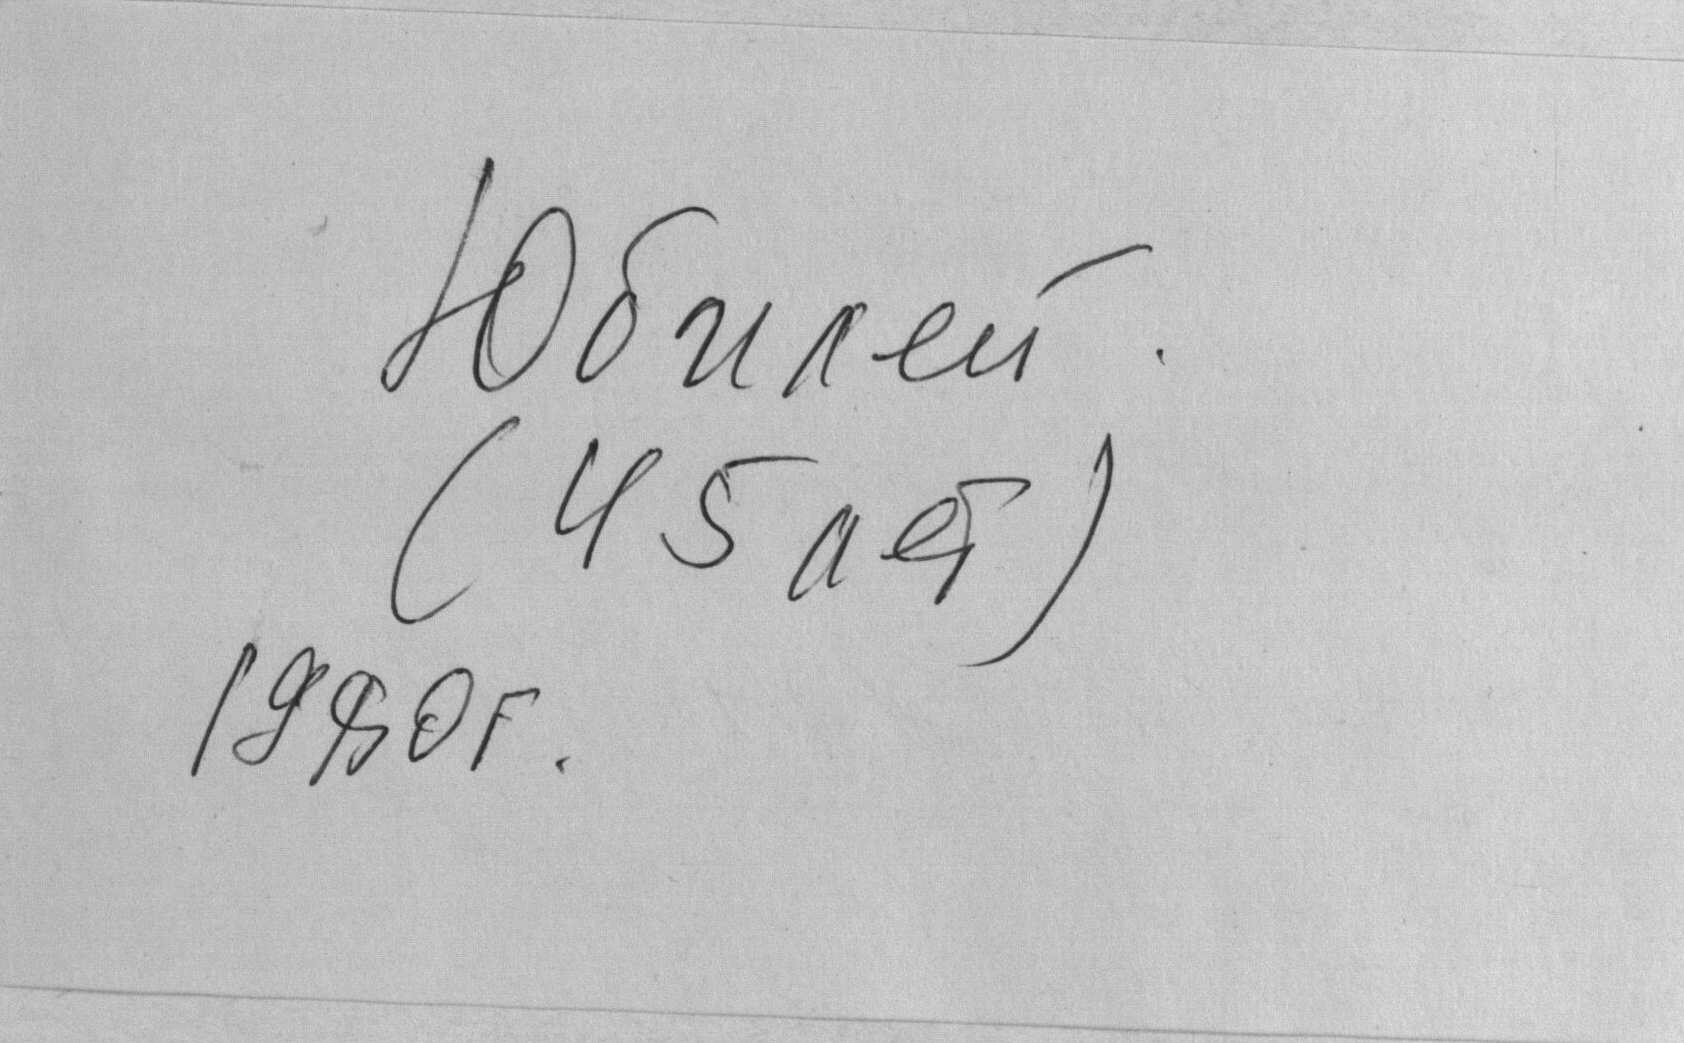 Юбилей.
(45 лет)
1980г.